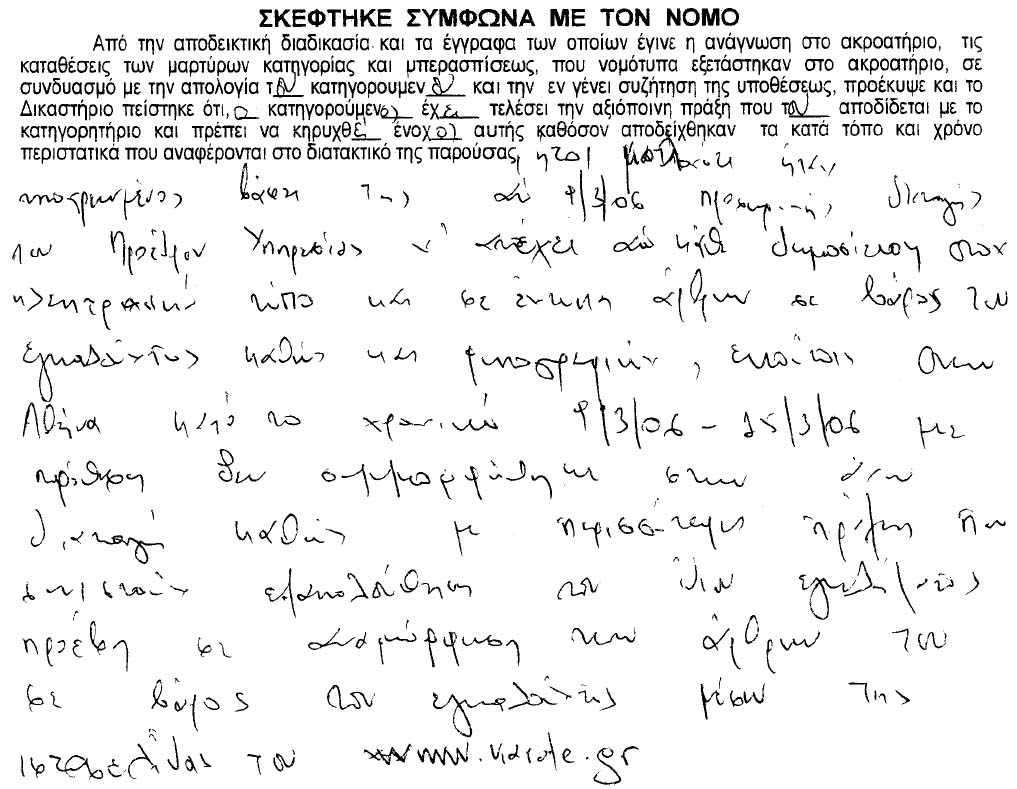 ΣΚΕΦΤΗΚΕ ΣΥΜΦΩΝΑ ΜΕ ΤΟΝ ΝΟΜΟ
Από την αποδεικτική διαδικασία και τα έγγραφα των οποίων έγινε η ανάγνωση στο ακροατήριο, τις
καταθέσεις των μαρτύρων κατηγορίας και μπερασπίσεως, που νομότυπα εξετάστηκαν στο ακροατήριο, σε
συνδυασμό με την απολογία του κατηγορουμένου και την εν γένει συζήτηση της υποθέσεως, προέκυψε και το
Δικαστήριο πείστηκε ότι, ο κατηγορούμενος έχει τελέσει την αξιόποινη πράξη που του αποδίδεται με το
κατηγορητήριο και πρέπει να κηρυχθεί ένοχος αυτής καθόσον αποδείχθηκαν τα κατά τόπο και χρόνο
περιστατικά που αναφέρονται στο διατακτικό της παρούσας, ήτοι μολονότι ήταν
υποχρεωμένος βάσει της από 9/3/06 προσωρινής διαταγής
του Προέδρου Υπηρεσίας ν' απέχει από κάθε δημοσίευση στον
ηλεκτρονικό τύπο και σε έντυπη άρθρων σε βάρος του
εγκαλούντος καθώς και φωτογραφιών, εκείνος στην
Αθήνα κατά το χρονικό 9/3/06 - 25/3/06 με
πρόθεση δεν συμμορφώθηκε στην άνω
διαταγή καθώς με περισσότερες πράξεις που
συνιστούν εξακολούθηση του ίδιου εγκλήματος
προέβη σε αναμόρφωση των άρθρων του
σε βάρος του εγκαλούντος μέσω της
ιστοσελίδας του www.kasote.gr